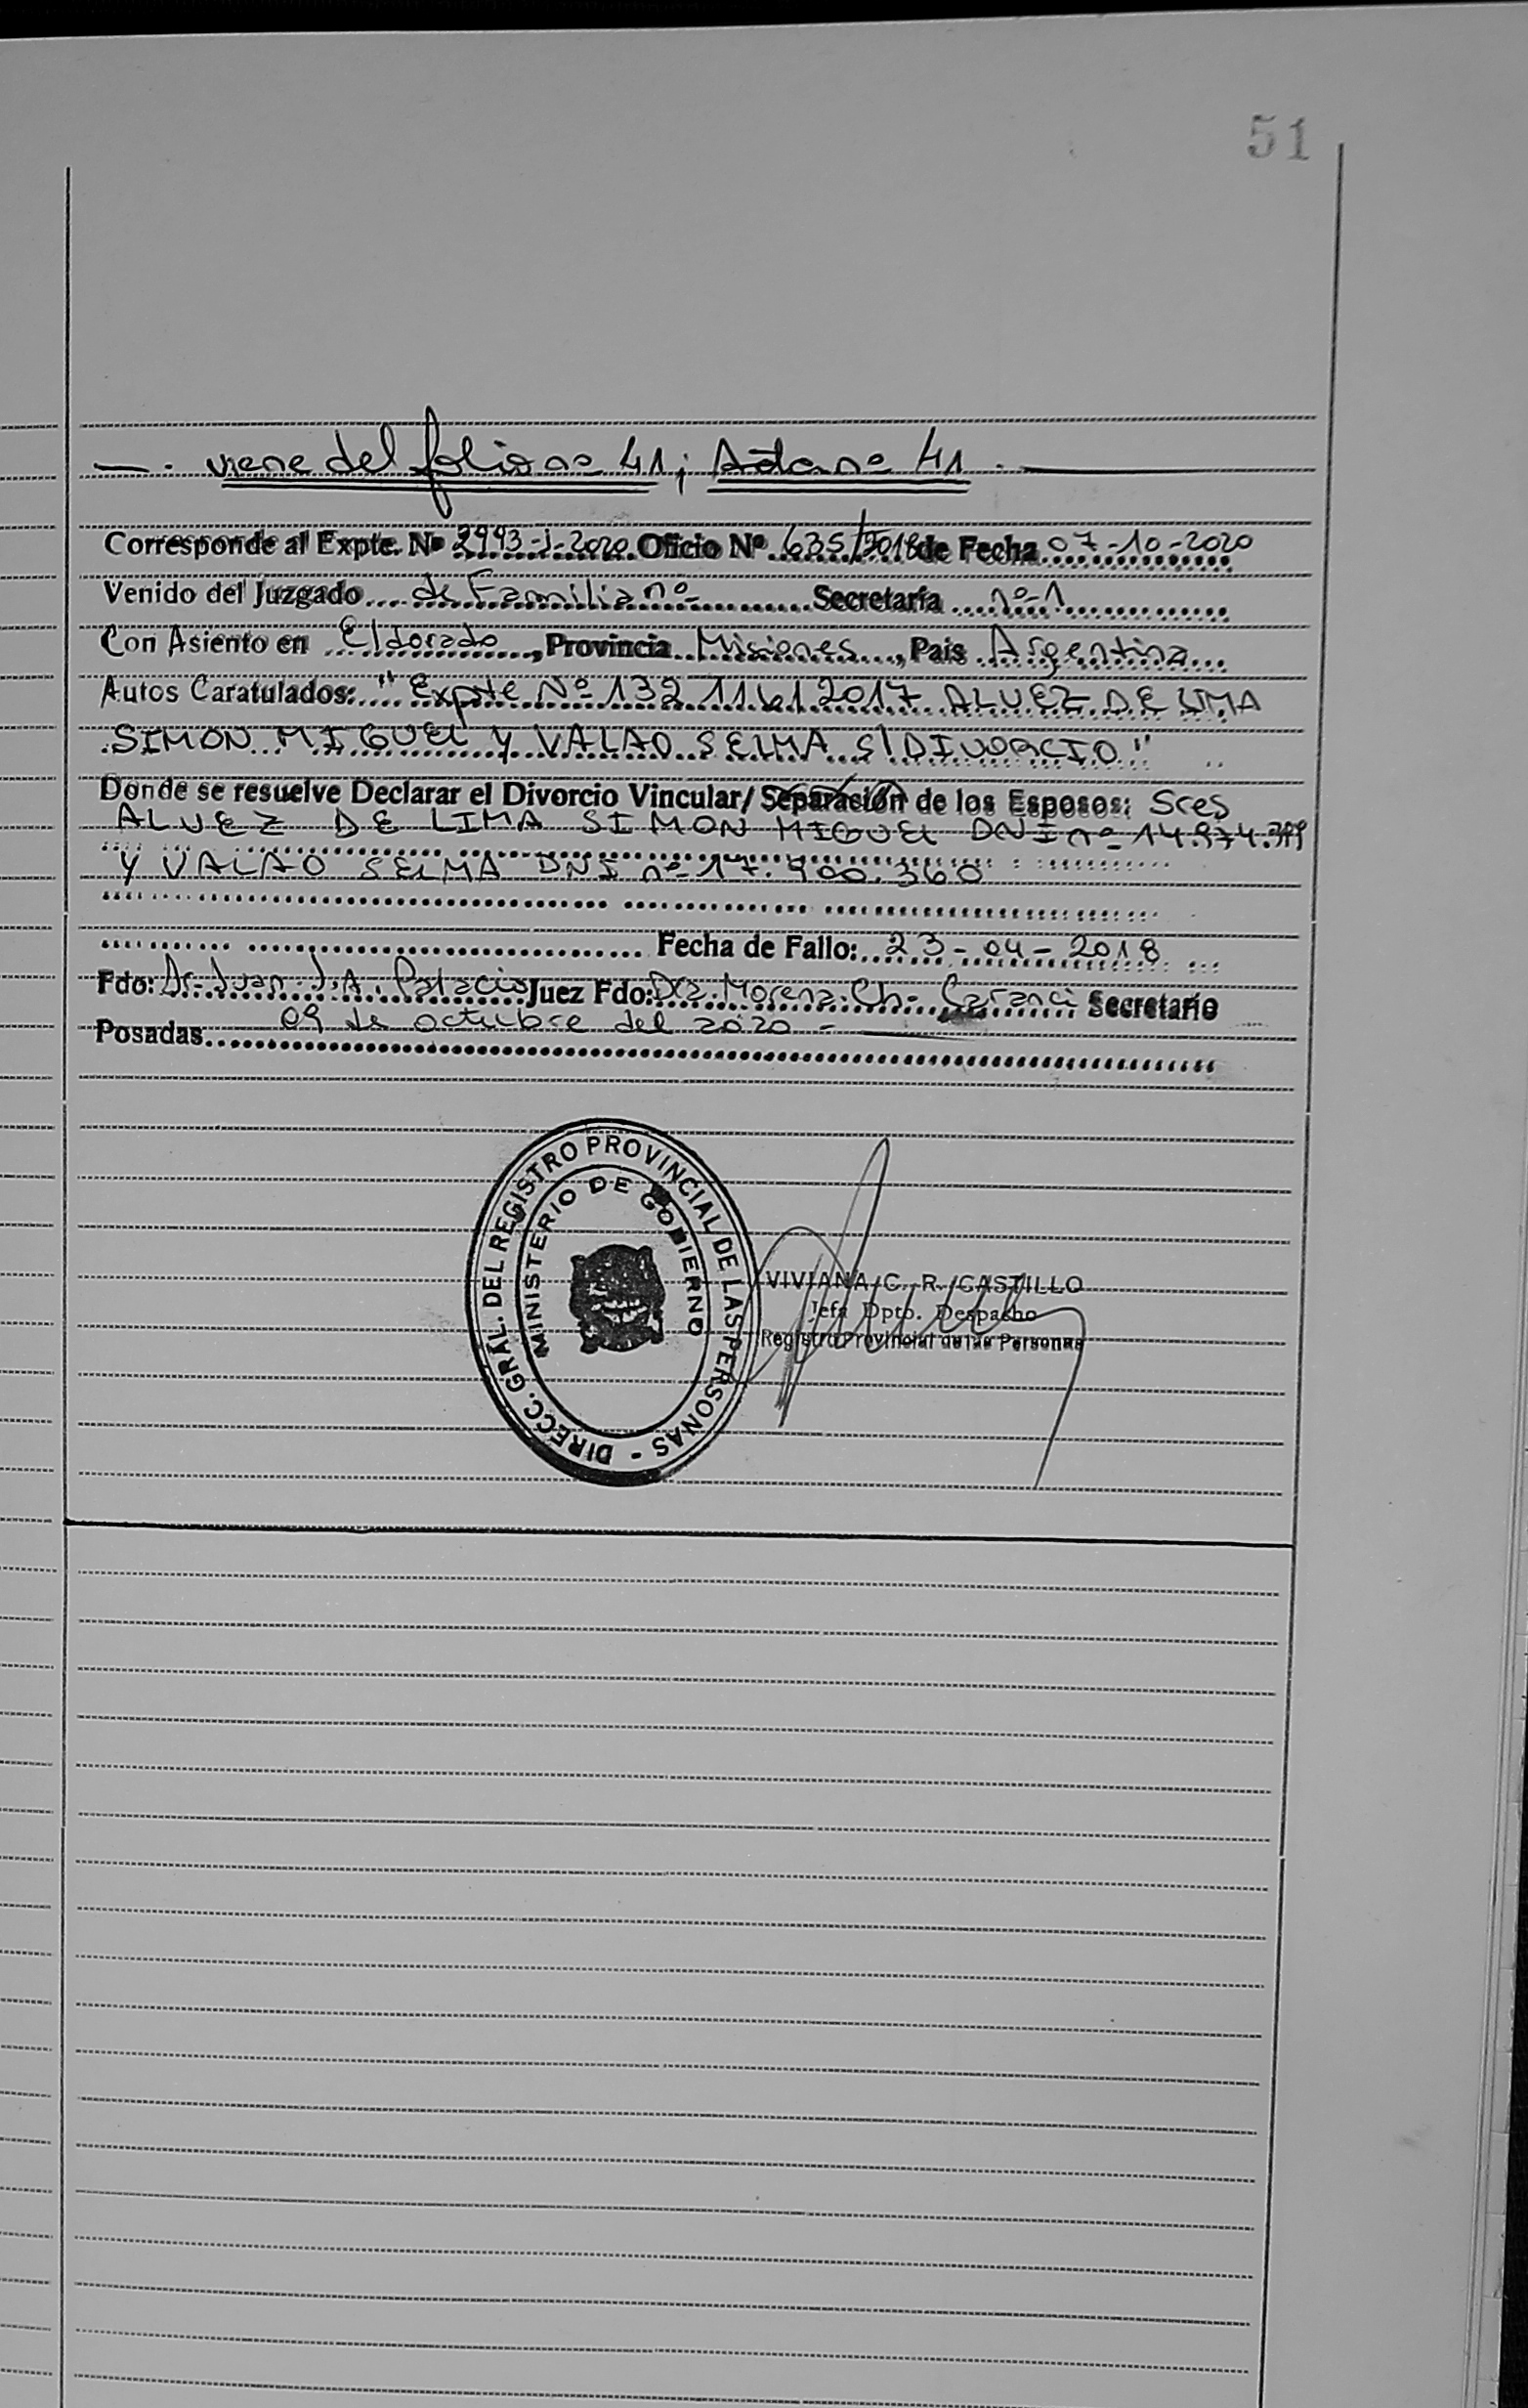 51
— . viene del folio nº 41 ; Acta nº 41 . —
Corresponde al Expte. Nº 2993-J-2020 Oficio Nº 635/2018 de Fecha 07-10-2020
Venido del Juzgado de Familia nº- Secretaría nº-1
Con Asiento en Eldorado, Provincia Misiones, País Argentina
Autos Caratulados: "Expte Nº 132 116/2017 ALVEZ DE LIMA
SIMON MIGUEL Y VALAO SELMA S/DIVORCIO"
Donde se resuelve Declarar el Divorcio Vincular/ Separación de los Esposos: Sres
ALVEZ DE LIMA SIMON MIGUEL DNI nº 14.974.399
Y VALAO SELMA DNI nº-17.900.360
Fecha de Fallo: 23-04-2018
Fdo: Dr. Juan J.A. Palacio Juez Fdo: Dra. Morena Ch. Secretario
Posadas 09 de octubre del 2020 -
DIRECC. GRAL. DEL REGISTRO PROVINCIAL DE LAS PERSONAS -
MINISTERIO DE GOBIERNO
VIVIANA C. R. CASTILLO
Jefa Dpto. Despacho
Registro Provincial de las Personas